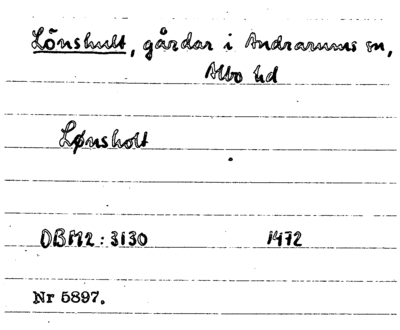 Lönshult, gårdar i Andrarums sn,
Albo hd
Lønsholt
DBM2: 3130 1472
Nr 5897.